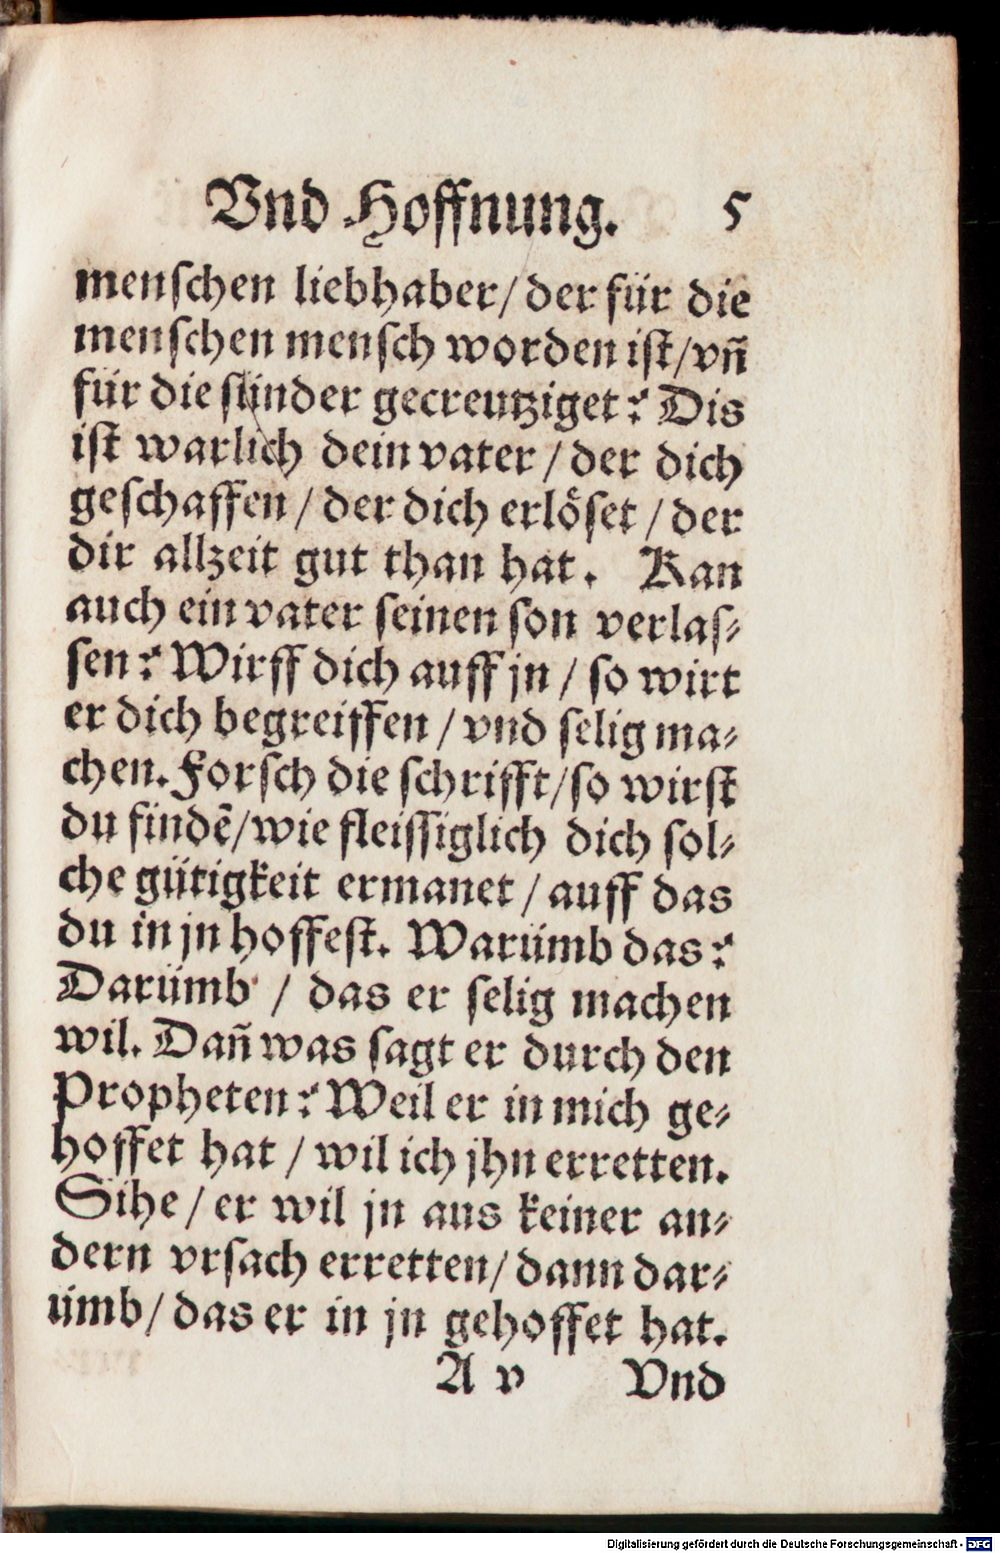 Vnd Hoffnung. 5
menſchen liebhaber/ der für die
menſchen menſch worden iſt/ vñ
für die ſünder gecreutziget? Dis
iſt warlich dein vater / der dich
geſchaffen / der dich erlöſet / der
dir allzeit gut than hat. Kan
auch ein vater ſeinen ſon verlaſ⸗
ſen? Wirff dich auff jn / ſo wirt
er dich begreiffen / vnd ſelig ma⸗
chen. Forſch die ſchrifft/ ſo wirſt
du findẽ/ wie fleiſſiglich dich ſol⸗
che gütigkeit ermanet / auff das
du in jn hoffeſt. Warümb das?
Darümb / das er ſelig machen
wil. Dañ was ſagt er durch den
Propheten? Weil er in mich ge⸗
hoffet hat / wil ich jhn erretten.
Sihe / er wil jn aus keiner an⸗
dern vrſach erretten/ dann dar⸗
ümb/ das er in jn gehoffet hat.
A v Vnd
Digitalisierung gefördert durch die Deutsche Forschungsgemeinschaft - DFG